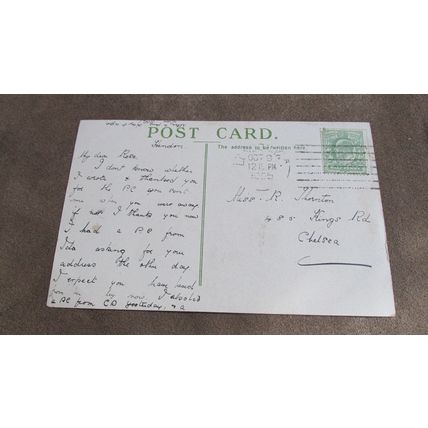 POST CARD.
The address to be written here
London.
My dear Rose
I don't know whether
I wrote & thanked you
for the PC you sent
me when you were away.
if not I thank you now
I had a PC from
Ida asking for your
address the other day.
I expect you have had
by now. I also had
a PC from CD yesterday,
OCT 9
12.15 PM
Miss. R. Thornton
485 Kings Rd
Chelsea